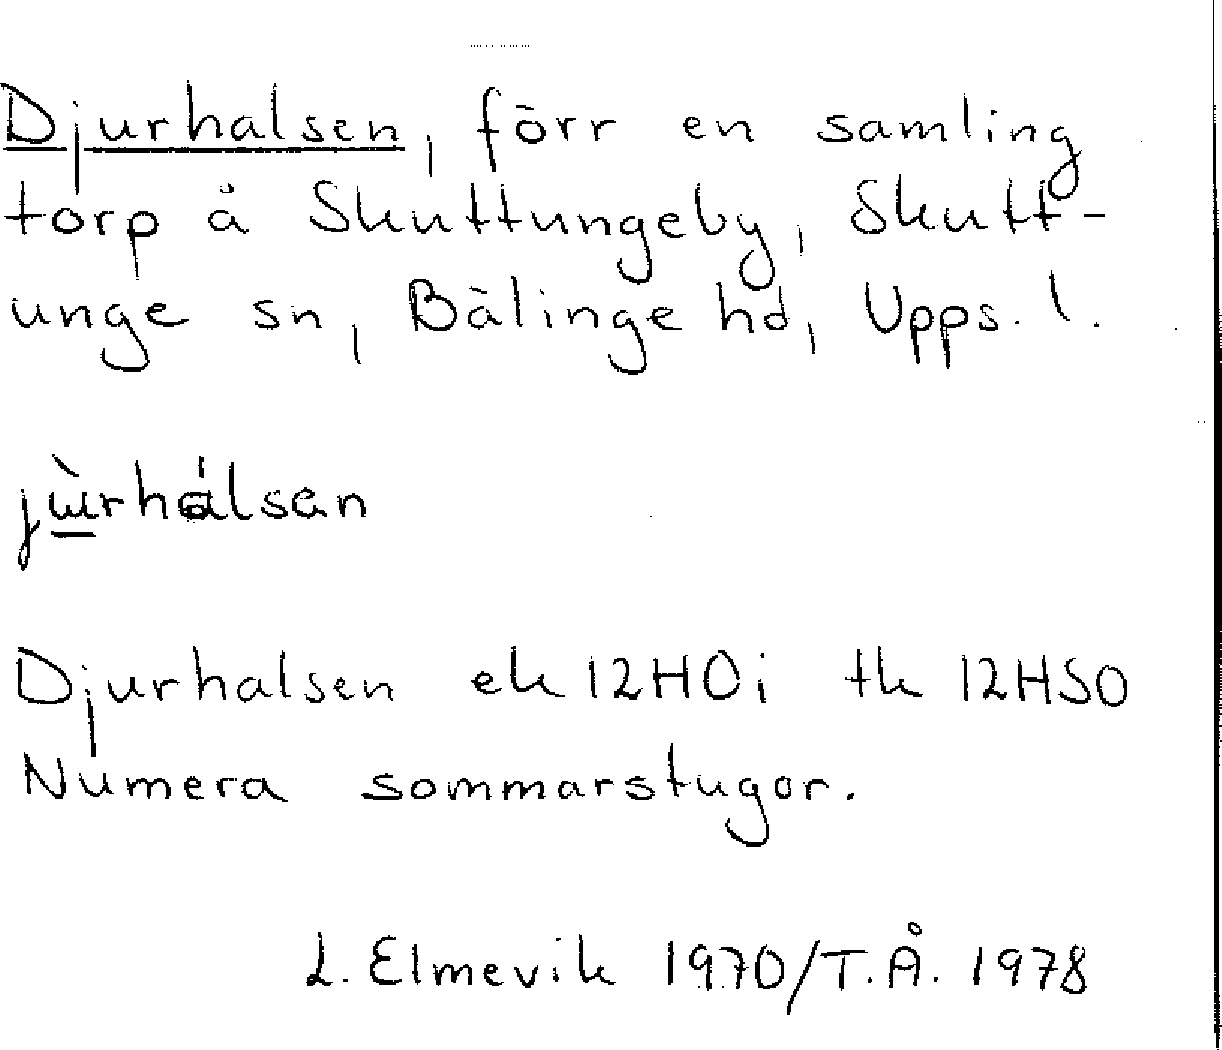 Djurhalsen, förr en samling
torp å Skuttungeby, Skutt-
unge sn, Bälinge hd, Upps. l.
jùrhálsan
Djurhalsen ek 12H0i tk 12HSO
Numera sommarstugor.
L. Elmevik 1970/T.Å. 1978